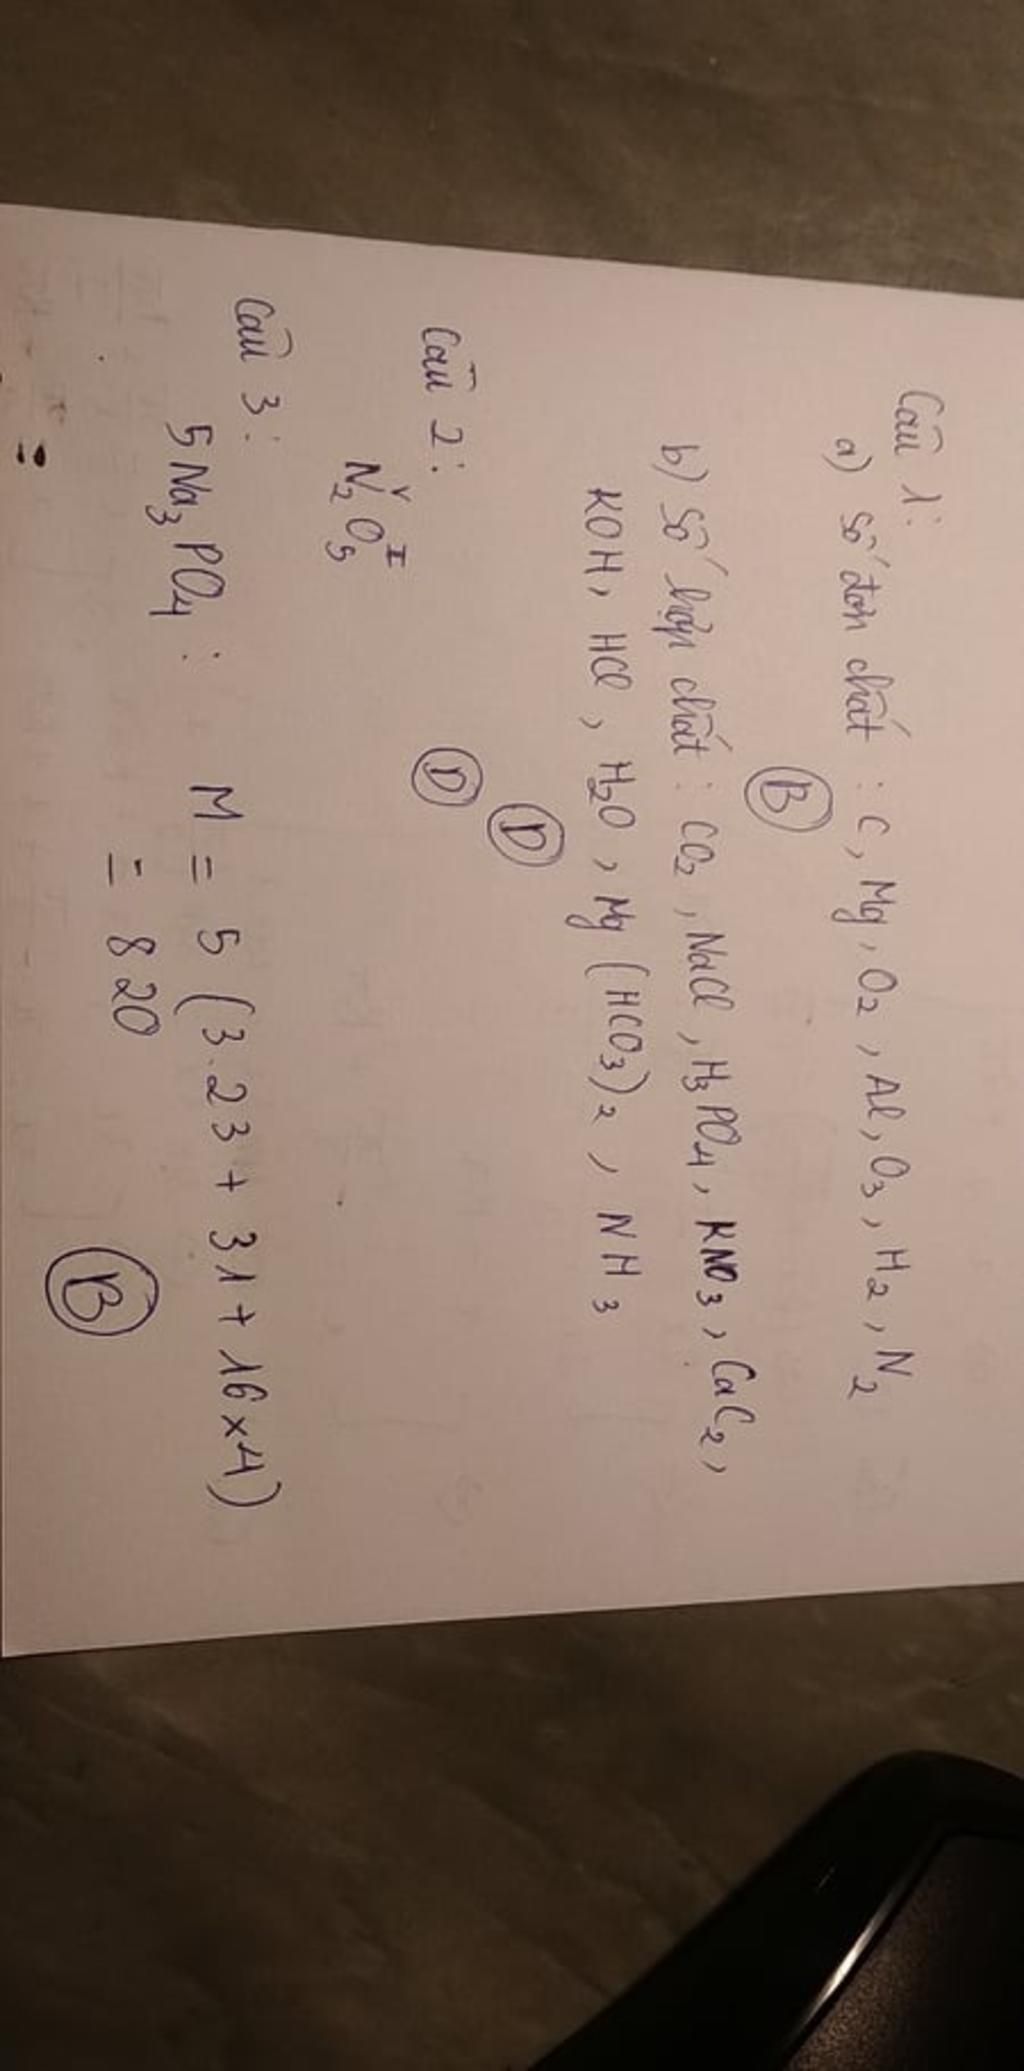 Câu 1:
a) Số đơn chất : C, Mg, O2, Al, O3, H2, N2
B
b) Số hợp chất : CO2, NaCl, H3PO4, KNO3, CaC2,
KOH, HCl, H2O, Mg(HCO3)2, NH3
D
Câu 2:
D
V I
N2O5
Câu 3:
5Na3PO4 : M = 5(3.23 + 31 + 16x4)
= 820
B